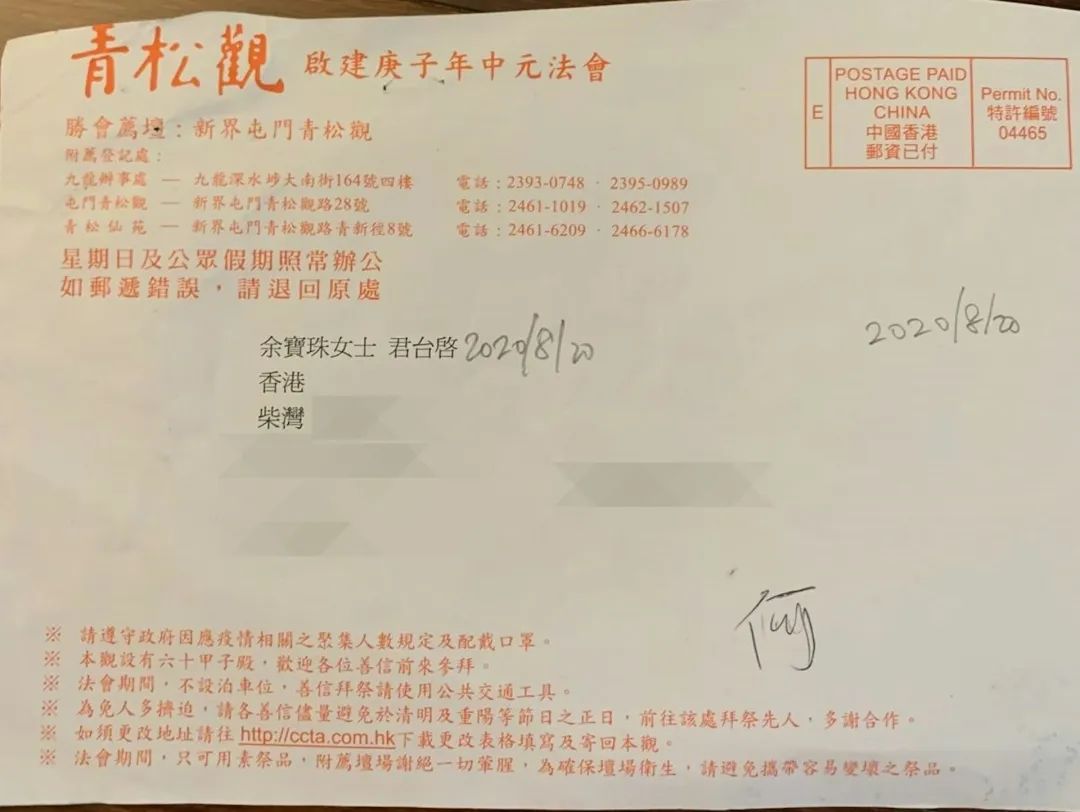 青松觀 啟建庚子年中元法會
E
POSTAGE PAID
HONG KONG
CHINA
中國香港
郵資已付
Permit No.
特許編號
04465
勝會薦壇：新界屯門青松觀
附薦登記處：
九龍辦事處 — 九龍深水埗大南街164號四樓 電話：2393-0748 · 2395-0989
屯門青松觀 — 新界屯門青松觀路28號 電話：2461-1019 · 2462-1507
青松仙苑 — 新界屯門青松觀路青新徑8號 電話：2461-6209 · 2466-6178
星期日及公眾假期照常辦公
如郵遞錯誤，請退回原處
余寶珠女士 君台啓 2020/8/20
2020/8/20
香港
柴灣
何
※ 請遵守政府因應疫情相關之聚集人數規定及配戴口罩。
※ 本觀設有六十甲子殿，歡迎各位善信前來參拜。
※ 法會期間，不設泊車位，善信拜祭請使用公共交通工具。
※ 為免人多擠迫，請各善信儘量避免於清明及重陽等節日之正日，前往該處拜祭先人，多謝合作。
※ 如須更改地址請往 http://ccta.com.hk下載更改表格填寫及寄回本觀。
※ 法會期間，只可用素祭品，附薦壇場謝絕一切葷腥，為確保壇場衛生，請避免攜帶容易變壞之祭品。